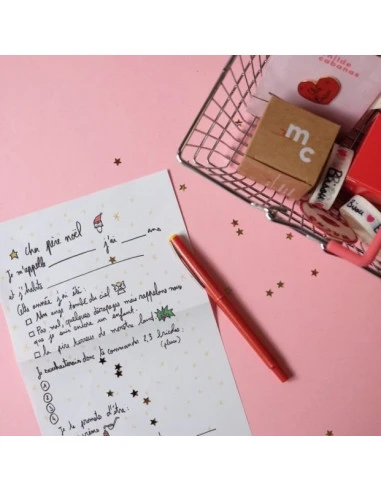 cher père noël
Je m'appelle ______ j'ai ___ ans
et j'habite ______
Cette année j'ai été :
□ Un ange tombé du ciel
□ Pas mal, quelques dérapages mais rappelons nous
que je suis encore un enfant.
□ la pire terreur de
Je souhaiterais donc te commander 2,3 bricoles
(plans)
①
②
③
④
Je te promets d'être :
mc
cabanas